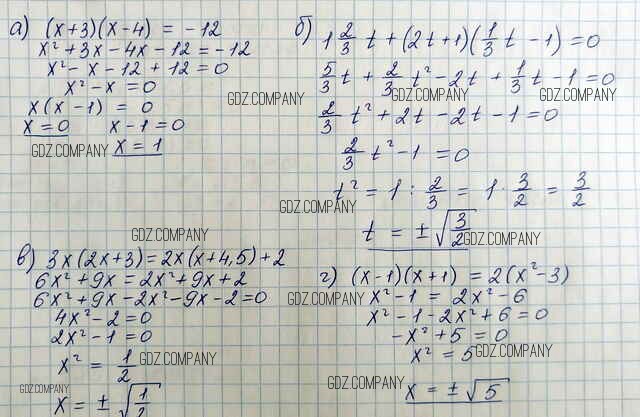 а) (x+3)(x-4) = -12
x² + 3x - 4x - 12 = -12
x² - x - 12 + 12 = 0
x² - x = 0
x(x - 1) = 0
x = 0 x - 1 = 0
x = 1
GDZ.COMPANY
GDZ.COMPANY
б) 1 2/3 t + (2t+1)(1/3 t - 1) = 0
5/3 t + 2/3 t² - 2t + 1/3 t - 1 = 0
GDZ.COMPANY GDZ.COMPANY
2/3 t² + 2t - 2t - 1 = 0
2/3 t² - 1 = 0
t² = 1 : 2/3 = 1 · 3/2 = 3/2
GDZ.COMPANY
t = ± √3/2
GDZ.COMPANY
GDZ.COMPANY
в) 3x(2x+3) = 2x(x+4,5) + 2
6x² + 9x = 2x² + 9x + 2
6x² + 9x - 2x² - 9x - 2 = 0
4x² - 2 = 0
2x² - 1 = 0
x² = 1/2
GDZ.COMPANY
GDZ.COMPANY
x = ± √1/2
г) (x-1)(x+1) = 2(x² - 3)
GDZ.COMPANY
x² - 1 = 2x² - 6
x² - 1 - 2x² + 6 = 0
-x² + 5 = 0
x² = 5
GDZ.COMPANY
GDZ.COMPANY
x = ± √5